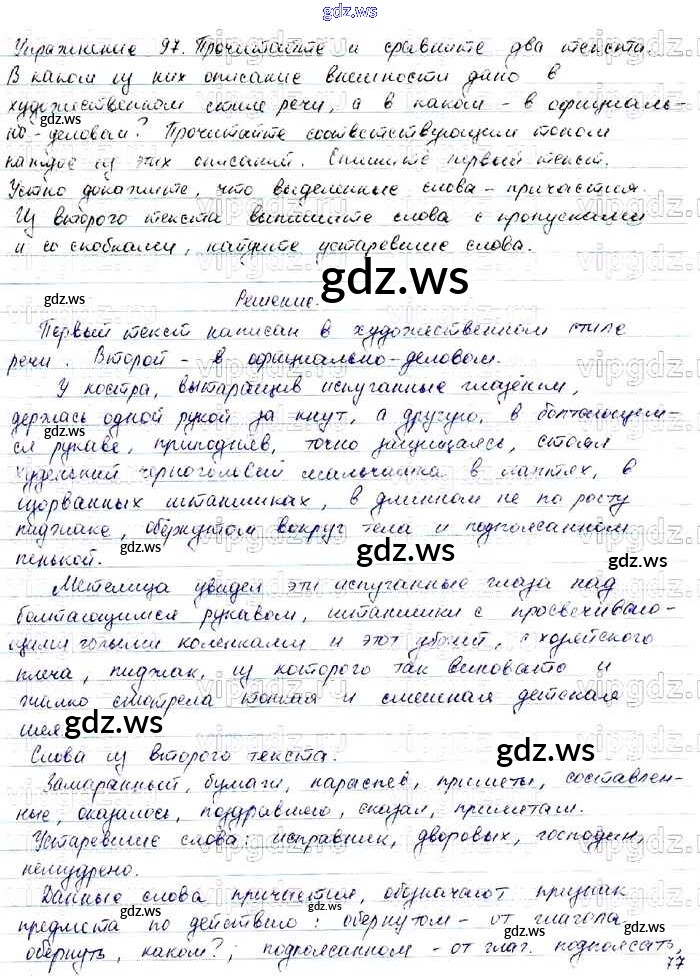 gdz.ws
Упражнение 97. Прочитайте и сравните два текста.
В каком из них описание внешности дано в
художественном стиле речи, а в каком - в официаль-
но-деловом? Прочитайте соответствующим тоном
каждое из этих описаний. Спишите первый текст.
Устно докажите, что выделенные слова - причастия.
Из второго текста выпишите слова с пропусками
и со скобками, найдите устаревшие слова.
gdz.ws gdz.ws gdz.ws
Решение.
Первый текст написан в художественном стиле
речи. Второй - в официально-деловом.
У костра, вытаращив испуганные глазёнки,
держась одной рукой за кнут, а другую, в болтающем-
ся рукаве, приподняв, точно защищаясь, стоял
худенький черноголовый мальчишка в лаптях, в
изорванных штанишках, в длинном не по росту
пиджаке, обёрнутом вокруг тела и подпоясанном
пенькой.
Метелица увидел эти испуганные глаза над
болтающимся рукавом, штанишки с просвечиваю-
щими голыми коленками и этот убогий, с хозяйского
плеча, пиджак, из которого так виновато и
жалко смотрела тонкая и смешная детская
шея
gdz.ws gdz.ws
Слова из второго текста.
Замаранный, бумаги, нараспев, приметы, составлен-
ные, оказалось, поздравляю, сказал, приметам.
Устаревшие слова: исправник, дворовых, господин,
немудрено.
Данные слова причастия, обозначают признак
предмета по действию: обёрнутом - от глагола
обернуть, каком?; подпоясанном - от глаг. подпоясать,
77